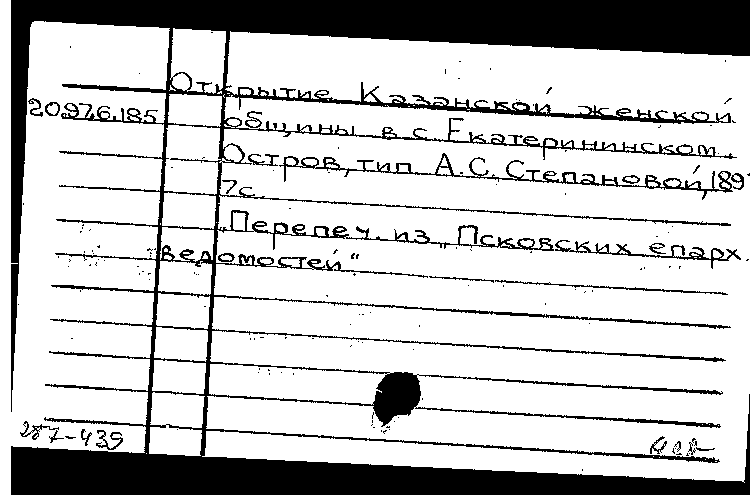 Открытие Казанской женской
20.976.185 общины в с. Екатерининском.
Остров, тип А.С. Степановой, 189
7с.
„Перепеч. из „Псковских епарх.
ведомостей“
287-439